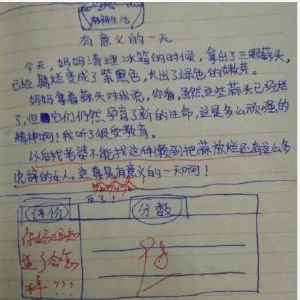 有意义的一天
今天，妈妈清理冰箱的时候，拿出了三颗蒜头，
已经腐烂变成了紫黑色，长出了绿色的嫩芽。
妈妈拿着蒜头对我说，你看，虽然这些蒜头已经烂
了，但它们仍然孕育了新的生命，这是多么顽强的
精神啊！我听了很受教育。
以后找老婆不能找这种懒到把蒜放烂还有这么多
说辞的女人。这真是有意义的一天啊！
哈哈哈
评价
分数
你妈妈知
道了会怎
样？？？